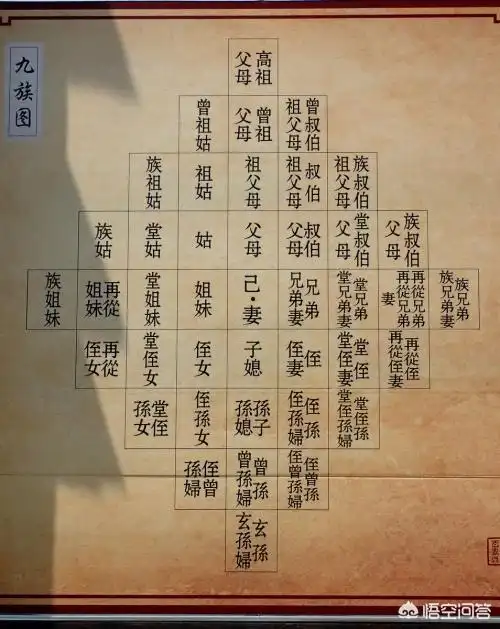 九族图
高祖父母
曾祖姑 曾祖父母 曾叔伯祖父母
族祖姑 祖姑 祖父母 叔伯祖父母 族叔伯祖父母
族姑 堂姑 姑 父母 叔伯父母 堂叔伯父母 族叔伯父母
族姐妹 再從姐妹 堂姐妹 姐妹 己·妻 兄弟兄弟妻 堂兄弟堂兄弟妻 再從兄弟再從兄弟妻 族兄弟族兄弟妻
再從侄女 堂侄女 侄女 子媳 侄侄妻 堂侄堂侄妻 再從侄再從侄妻
堂侄孫女 侄孫女 孫子孫媳 侄孫侄孫婦 堂侄孫堂侄孫婦
侄曾孫婦 曾孫曾孫婦 侄曾孫侄曾孫婦
玄孫玄孫婦
悟空问答